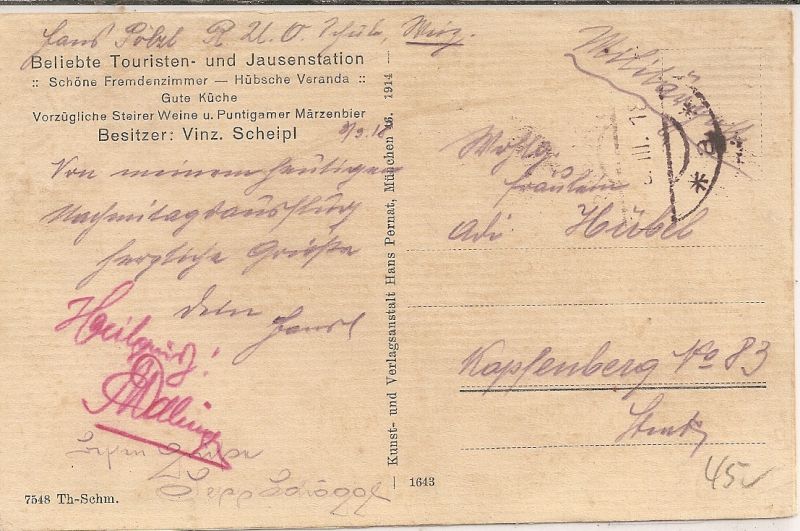 Hans Pölzl R. U. O. Schule, Wirz.
Beliebte Touristen- und Jausenstation
:: Schöne Fremdenzimmer — Hübsche Veranda ::
Gute Küche
Vorzügliche Steirer Weine u. Puntigamer Märzenbier
Besitzer: Vinz. Scheipl
Von meinem heutigen
Nachmittagsausflug
herzliche Grüße
Dein Hansl
Heilgruß!
7548 Th-Schm.
Kunst- und Verlagsanstalt Hans Pernat, München 46. 1914 —
1643
III
Fräulein
Adi Hübel
Kapfenberg No 83
45